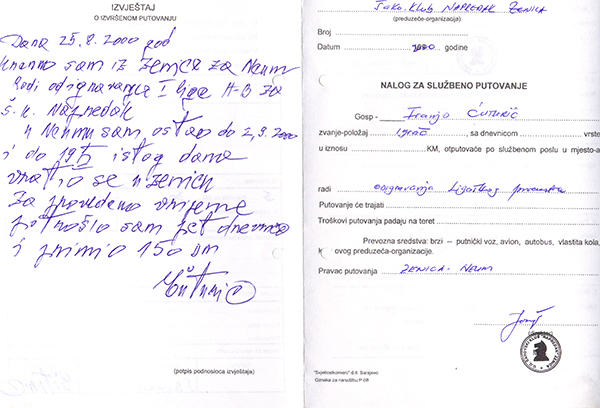 IZVJEŠTAJ
O IZVRŠENOM PUTOVANJU
Dana 25.8.2000 god
sam iz Zenica za Neum
Radi odigravanja I lige A-B za
Š.K. Napredak
u Neumu sam ostao do 2.9.2000
i do 19 h istog dana
vratio se u Zenicu
Za provedeno vrijeme
potrošio sam pet dnevnica
i primio 150 DM
(potpis podnosioca izvještaja)
Šah. Klub NAPREDAK ZENICA
(preduzeće-organizacija)
Broj
Datum 2000 godine
NALOG ZA SLUŽBENO PUTOVANJE
Gosp - Franjo Ćuturić
zvanje-položaj igrač, sa dnevnicom vrste
u iznosu KM, otputovaće po službenom poslu u mjesto-a
radi odigravanja Ligaškog prvenstva
Putovanje će trajati
Troškovi putovanja padaju na teret
Prevozna sredstva: brzi – putnički voz, avion, autobus, vlastita kola,
ovog preduzeća-organizacije.
Pravac putovanja ZENICA - NEUM
"Svjetlostkomerc" d.d. Sarajevo
Oznaka za narudžbu P-08